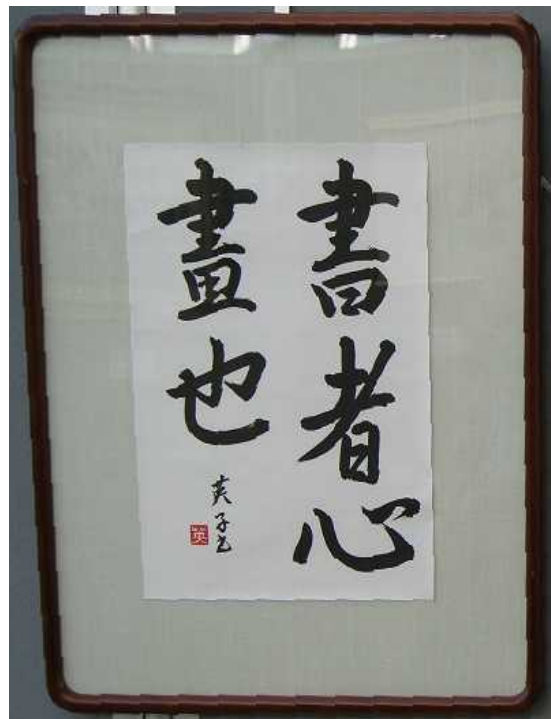 書者心
畫也
英子书
英